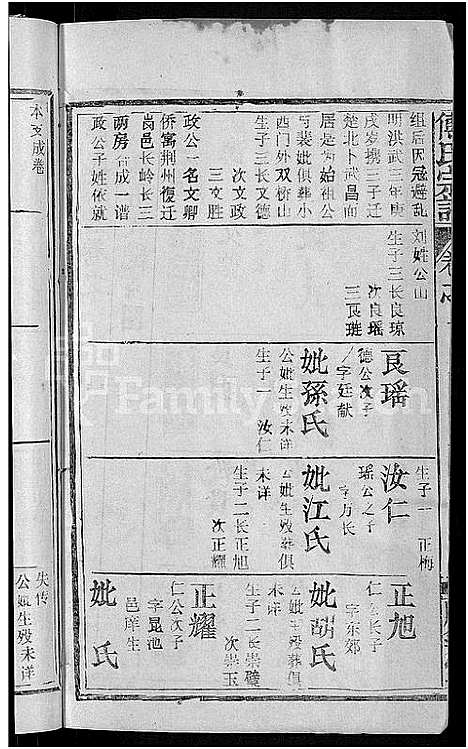 傅氏宗谱
卷
组后因寇避乱
明洪武三年庚
戌岁携三子迁
楚北卜武昌南
居是为始祖公
与裴妣俱葬小
西门外双桥山
生子三长文德
次文政
三文胜
政公一名文卿
侨寓荆州復迁
岗邑长岭长三
两房合成一谱
政公子姓依
刘姓公山
生子三长良琼
次良瑶
三良琏
良瑶
德公次子
字廷献
妣孫氏
公妣生殁未详
生子一 汝仁
生子一 正梅
汝仁
瑶公之子
字万长
妣江氏
公妣生殁葬俱
未详
生子二长正旭
次正耀
正旭
仁公长子
字东郊
妣胡氏
公妣生殁葬俱
未详
生子二长崇璧
次崇玉
正耀
仁公次子
字昆池
邑庠生
妣 氏
本支成卷
失传
公妣生殁未详
Family